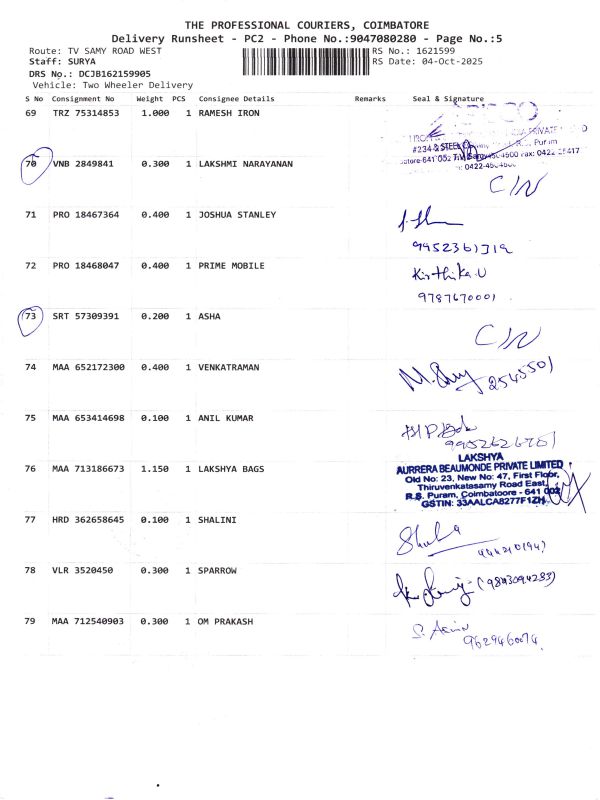 THE PROFESSIONAL COURIERS, COIMBATORE
Delivery Runsheet - PC2 - Phone No.:9047080280 - Page No.:5
Route: TV SAMY ROAD WEST RS No.: 1621599
Staff: SURYA RS Date: 04-Oct-2025
DRS No.: DCJB162159905
Vehicle: Two Wheeler Delivery
S No Consignment No Weight PCS Consignee Details Remarks Seal & Signature
69 TRZ 75314853 1.000 1 RAMESH IRON
PRIVATE
#234
Puram
70 VNB 2849841 0.300 1 LAKSHMI NARAYANAN
C/N
71 PRO 18467364 0.400 1 JOSHUA STANLEY
72 PRO 18468047 0.400 1 PRIME MOBILE Kirthika.U
9787670001
73 SRT 57309391 0.200 1 ASHA
C/N
74 MAA 652172300 0.400 1 VENKATRAMAN
2545501
75 MAA 653414698 0.100 1 ANIL KUMAR
LAKSHYA
76 MAA 713186673 1.150 1 LAKSHYA BAGS AURRERA BEAUMONDE PRIVATE LIMITED
Old No: 23, New No: 47, First Floor,
Thiruvenkatasamy Road East,
R.S. Puram, Coimbatoore - 641 002
GSTIN: 33AALCA8277F1ZH
77 HRD 362658645 0.100 1 SHALINI
78 VLR 3520450 0.300 1 SPARROW
79 MAA 712540903 0.300 1 OM PRAKASH
9629460074